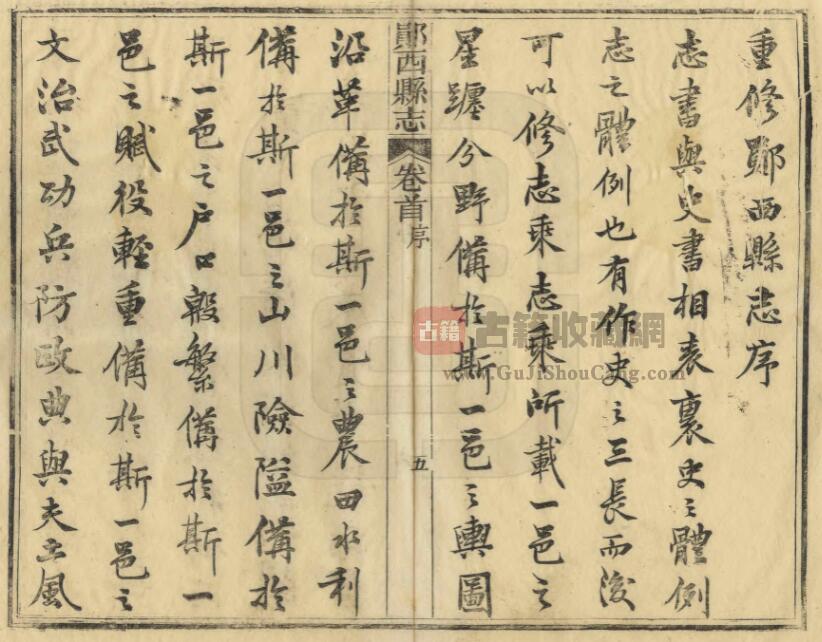 重修鄖西縣志序
志書與史書相表裏史之體例
志之體例也有作史之三長而後
可以修志乘志乘所載一邑之
星躔分野備於斯一邑之輿圖
鄖西縣志 卷首 序 五
沿革備於斯一邑之農田水利
備於斯一邑之山川險隘備於
斯一邑之戶口殷繁備於斯一
邑之賦役輕重備於斯一邑之
文治武功兵防政典與夫土風
古籍 古籍收藏網
www.GuJiShouCang.com